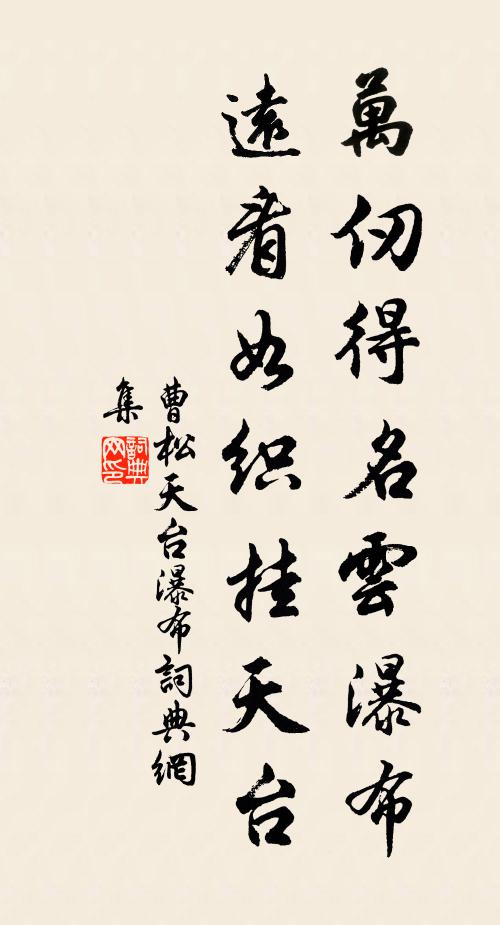 萬仞得名雲瀑布
遠看如织挂天台
曹松天台瀑布詞典網
集
詞典網印